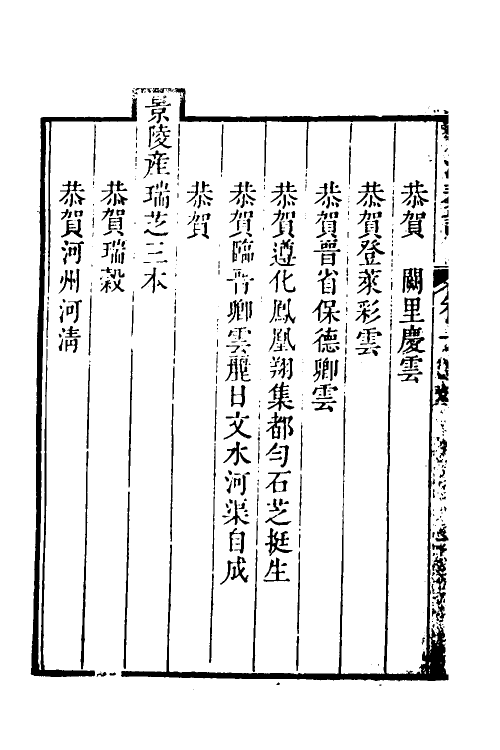 恭賀　闕里慶雲
恭賀登萊彩雲
恭賀晉省保德卿雲
恭賀遵化鳳凰翔集都勻石芝挺生
恭賀臨晉卿雲麗日文水河渠自成
恭賀
景陵産瑞芝三本
恭賀瑞穀
恭賀河州河清